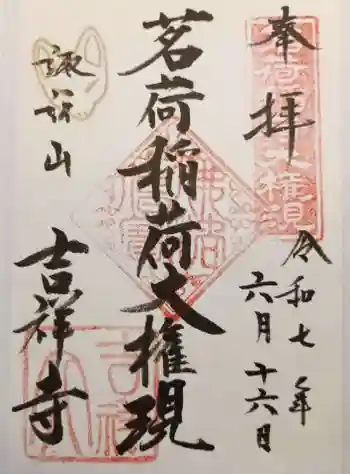 奉拝
令和七年
六月十六日
茗荷稲荷大権現
諏訪山
吉祥寺